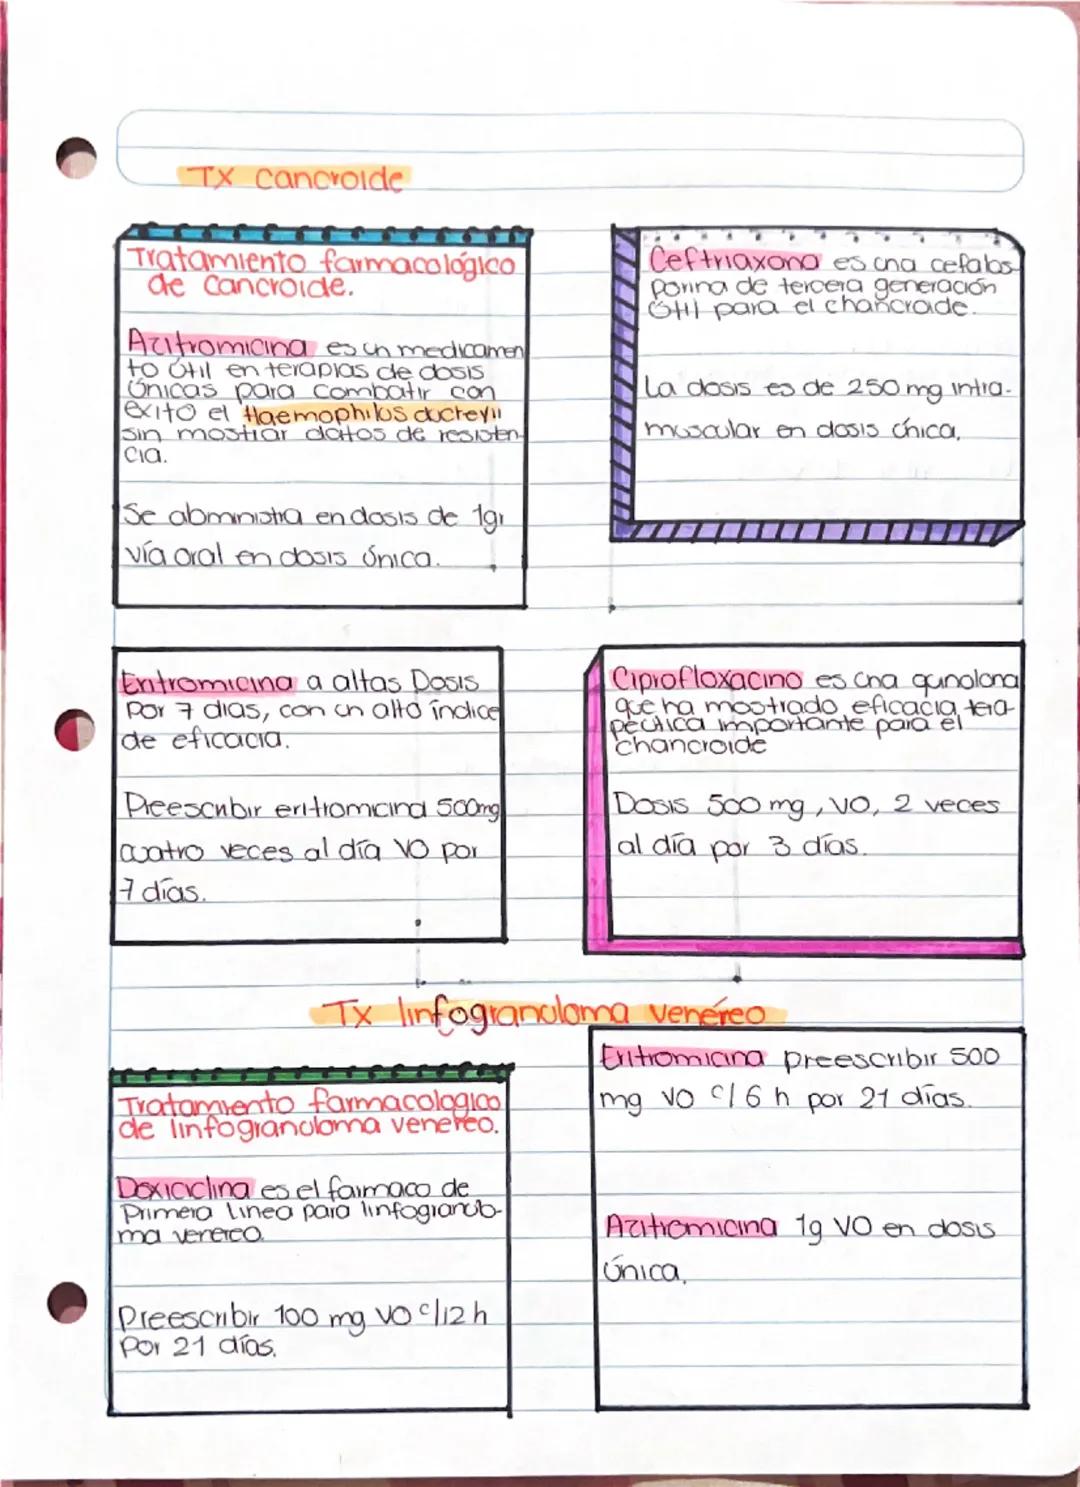 Tx Cancroide
Tratamiento farmacológico
de Cancroide.
Azitromicina es un medicamen
to útil en terapias de dosis
únicas para combatir con
éxito el Haemophilus ducreyii
sin mostrar datos de resisten-
cia.
Se abministra en dosis de 1gr
vía oral en dosis única.
Ceftriaxona es una cefalos-
porina de tercera generación
útil para el chancroide.
La dosis es de 250 mg intra-
muscular en dosis única.
Eritromicina a altas Dosis
Por 7 dias, con un alto índice
de eficacia.
Preescribir eritromicina 500mg
cuatro veces al día VO por
7 días.
Ciprofloxacino es una quinolona
que ha mostrado eficacia tera-
peútica importante para el
chancroide
Dosis 500 mg, VO, 2 veces
al día por 3 días.
Tx linfogranuloma venéreo
Tratamiento farmacologico
de linfogranuloma venereo.
Doxiciclina es el farmaco de
Primera Linea para linfogranulo-
ma venereo.
Preescribir 100 mg VO c/12 h
Por 21 días.
Eritromicina preescribir 500
mg VO c/6 h por 21 días.
Azitromicina 1g VO en dosis
única.